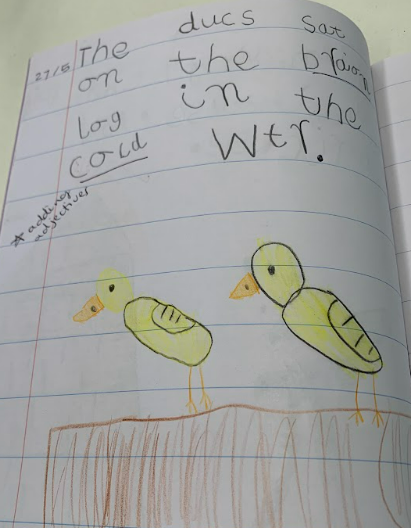 27/5
The ducs sat
on the braon
log in the
cold Wtr.
* adding
adjectives